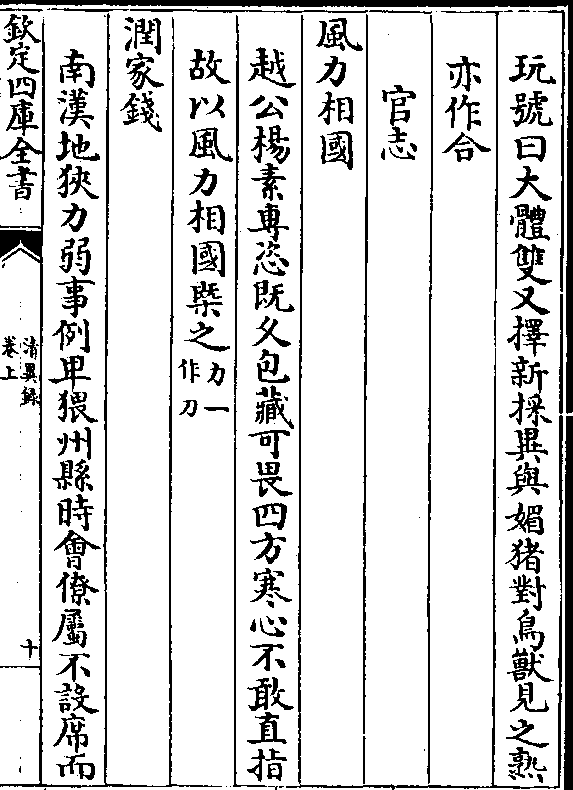 玩號曰大體雙又擇新採異與媚猪對鳥獸見之熟
亦作合
官志
風力相國
越公楊素専恣既久包藏可畏四方寒心不敢直指
故以風力相國槩之力一作刀
潤家錢
南漢地狹力弱事例卑猥州縣時會僚屬不設席而
欽定四庫全書
清異錄
卷上
十